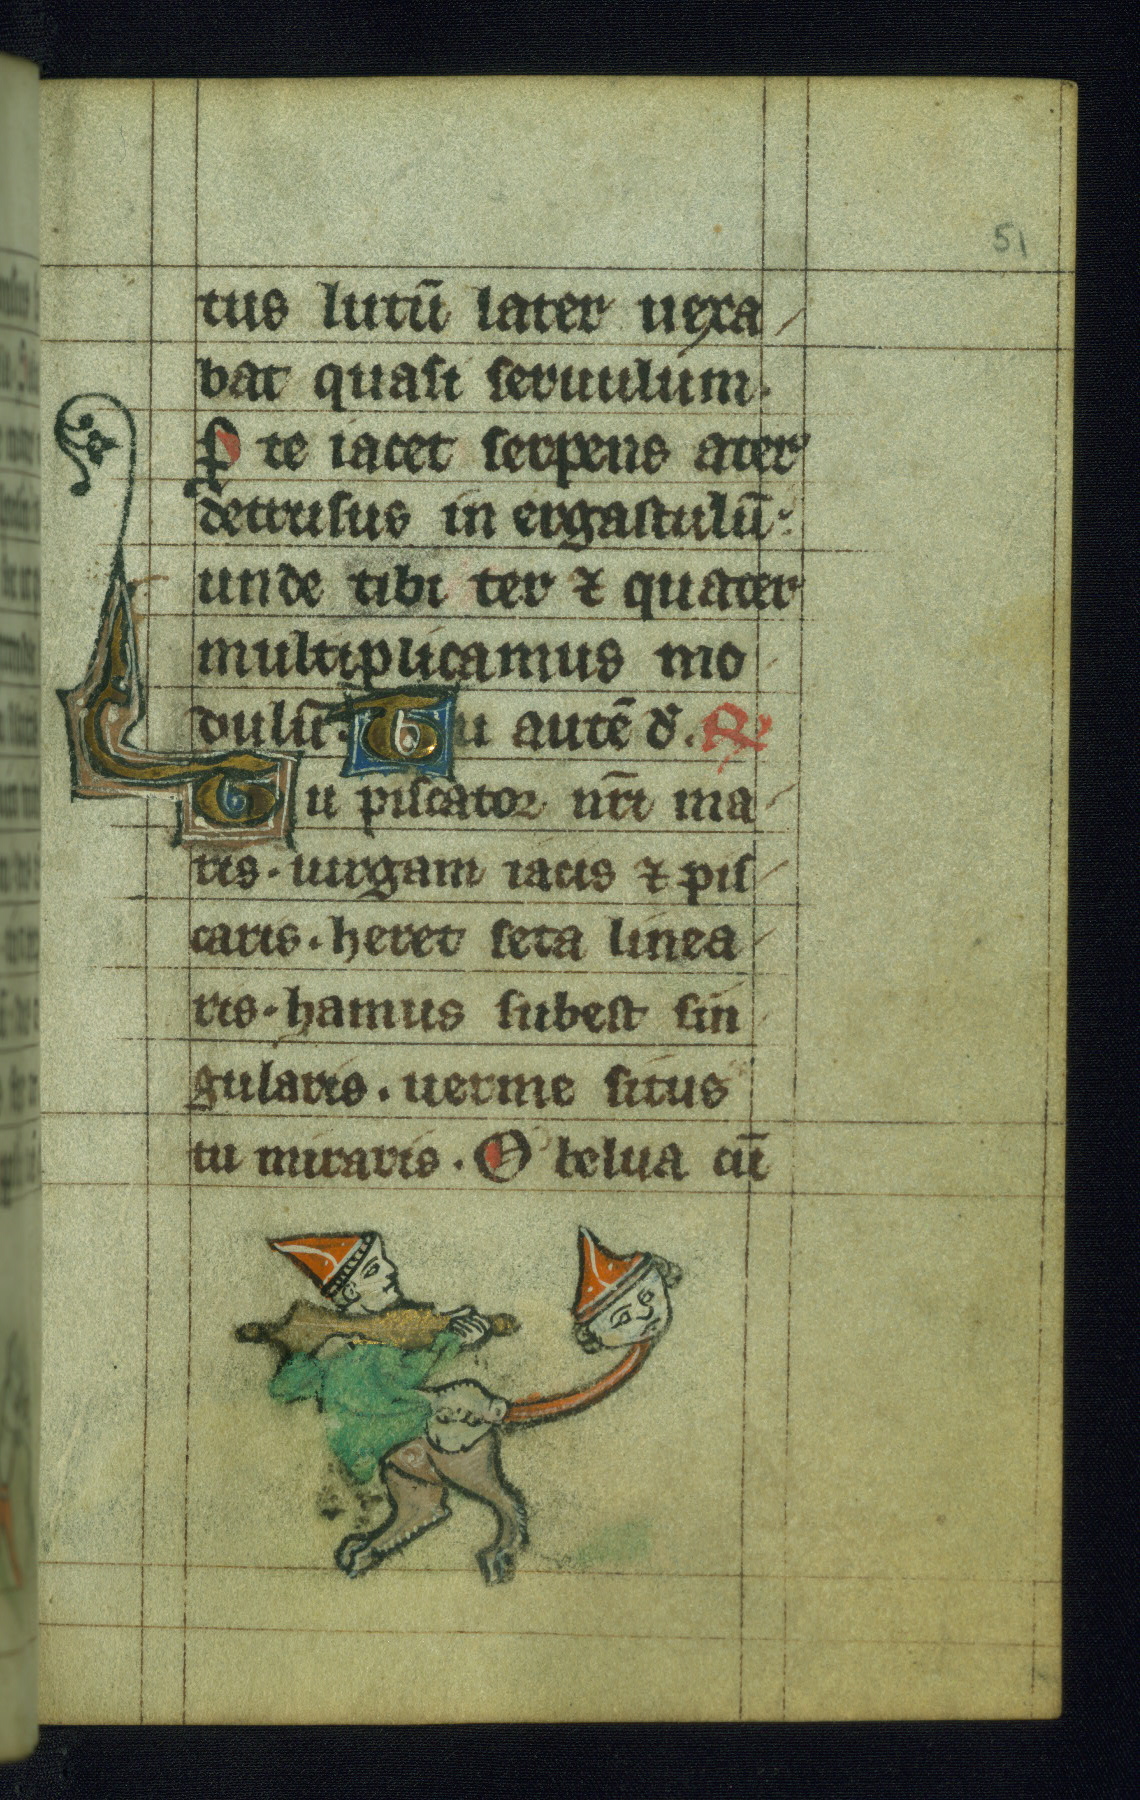 51
tus lutū later uexa
bat quasi seruulum.
P te iacet serpens ater
detrusus in ergastulū.
unde tibi ter ⁊ quater
multiplicamus mo
dulū. Tu autē d̄. R
Tu piscator nr̄i ma
ris. uirgam iacis ⁊ pis
caris. heret seta linea
ris. hamus subest sin
gularis. uerme situs
tu miraris. O belua cū